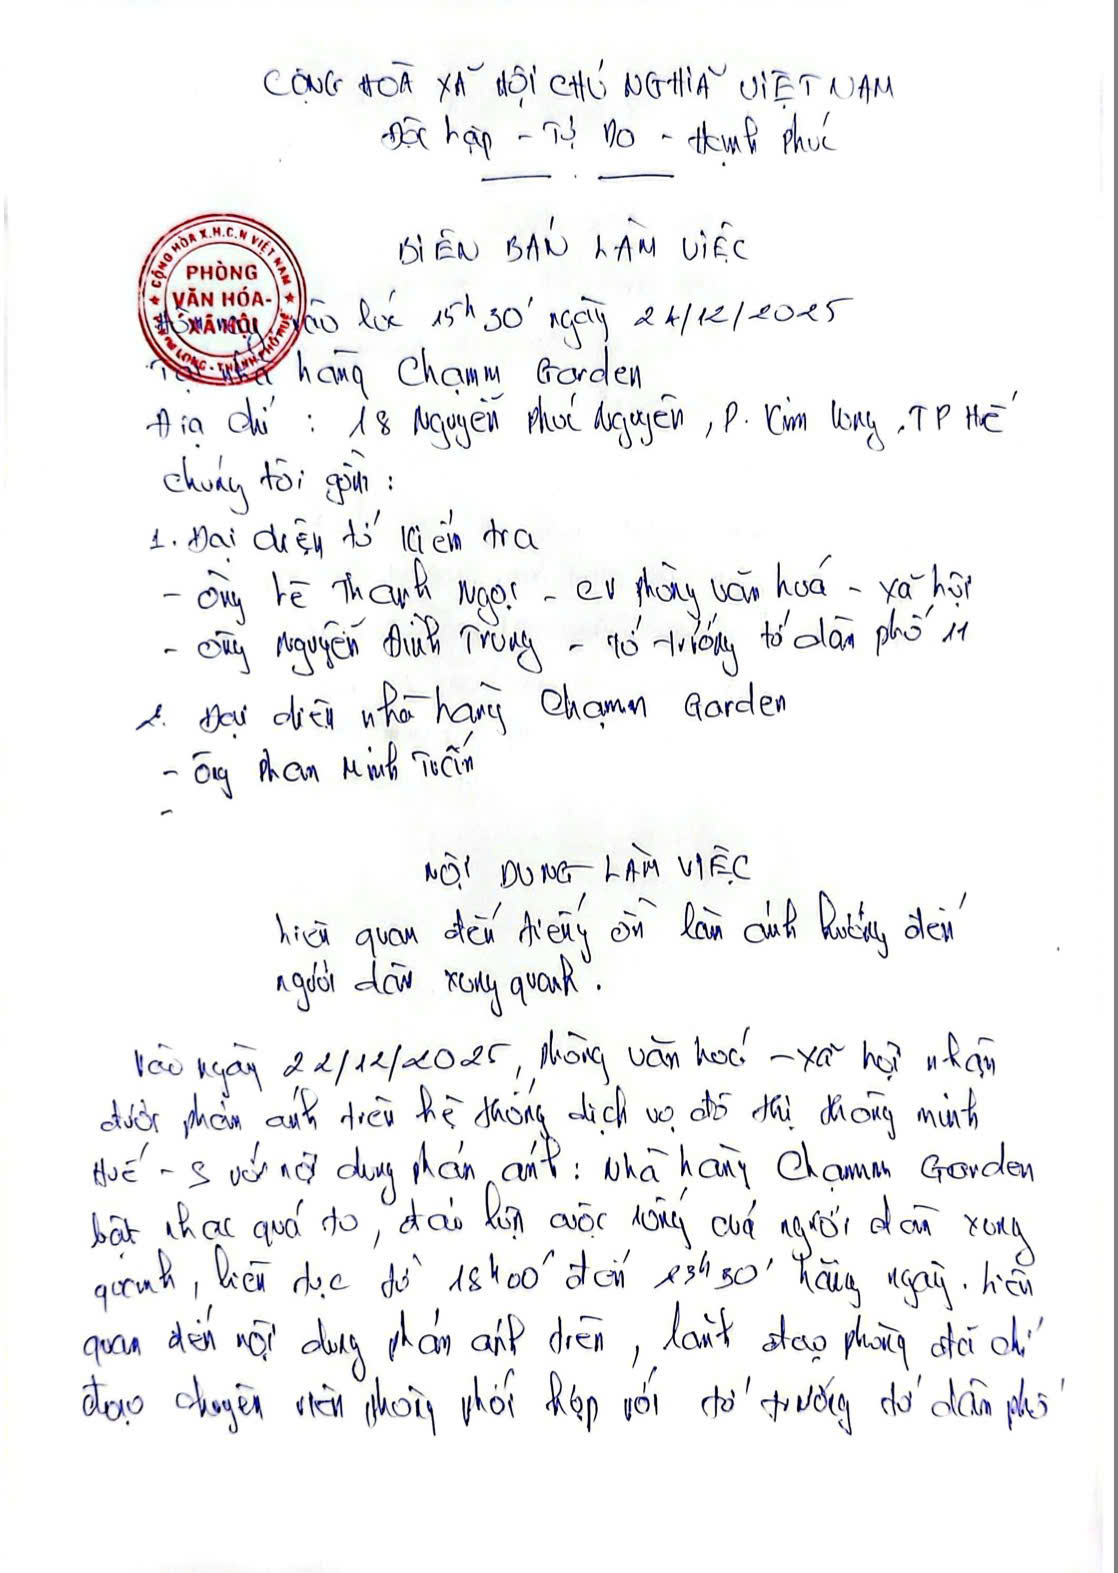 CỘNG HOÀ XÃ HỘI CHỦ NGHĨA VIỆT NAM
Độc lập - Tự Do - Hạnh phúc
BIÊN BẢN LÀM VIỆC
CỘNG HÒA X.H.C.N VIỆT NAM
PHÒNG
VĂN HÓA-
XÃ HỘI
LONG - THÀNH PHỐ HUẾ
Hôm nay vào lúc 15h30' ngày 24/12/2025
Tại nhà hàng Chạmm Garden
Địa chỉ : 18 Nguyễn Phúc Nguyên, P. Kim Long, TP Huế
chúng tôi gồm :
1. Đại diện tổ kiểm tra
- Ông Lê Thanh Ngọc - CV phòng văn hoá - xã hội
- Ông Nguyễn Đình Trung - Tổ trưởng tổ dân phố 11
2. Đại diện nhà hàng Chạmm Garden
- Ông Phan Minh Tuấn
-
NỘI DUNG LÀM VIỆC
Liên quan đến tiếng ồn làm ảnh hưởng đến
người dân xung quanh.
Vào ngày 22/12/2025, phòng văn hoá - xã hội nhận
được phản ánh trên hệ thống dịch vụ đô thị thông minh
Huế - S với nội dung phản ánh : Nhà hàng Chạmm Garden
bật nhạc quá to, đảo lộn cuộc sống của người dân xung
quanh, liên tục từ 18h00' đến 23h30' hằng ngày. Liên
quan đến nội dung phản ánh trên, lãnh đạo phòng đã chỉ
đạo chuyên viên phòng phối hợp với tổ trưởng tổ dân phố